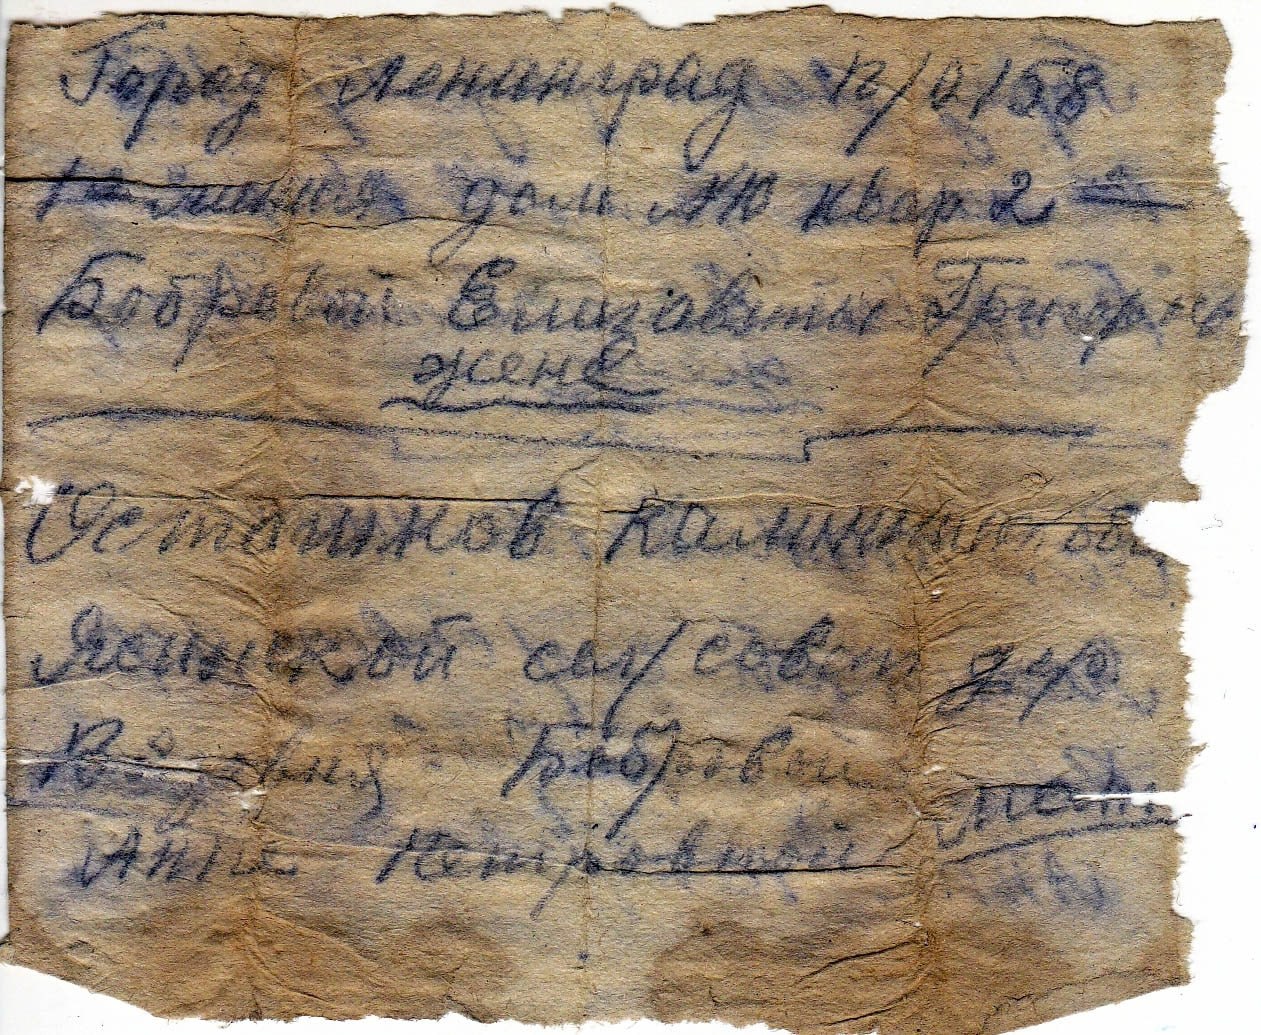 Город Ленинград п/о 158
линия дом №10 квар 2
Бобровой Елизаветы Григорьев
жена
Осташков Калинин обл
Ясинской сел/совет дер
Бобровой мать
Анне Петровной